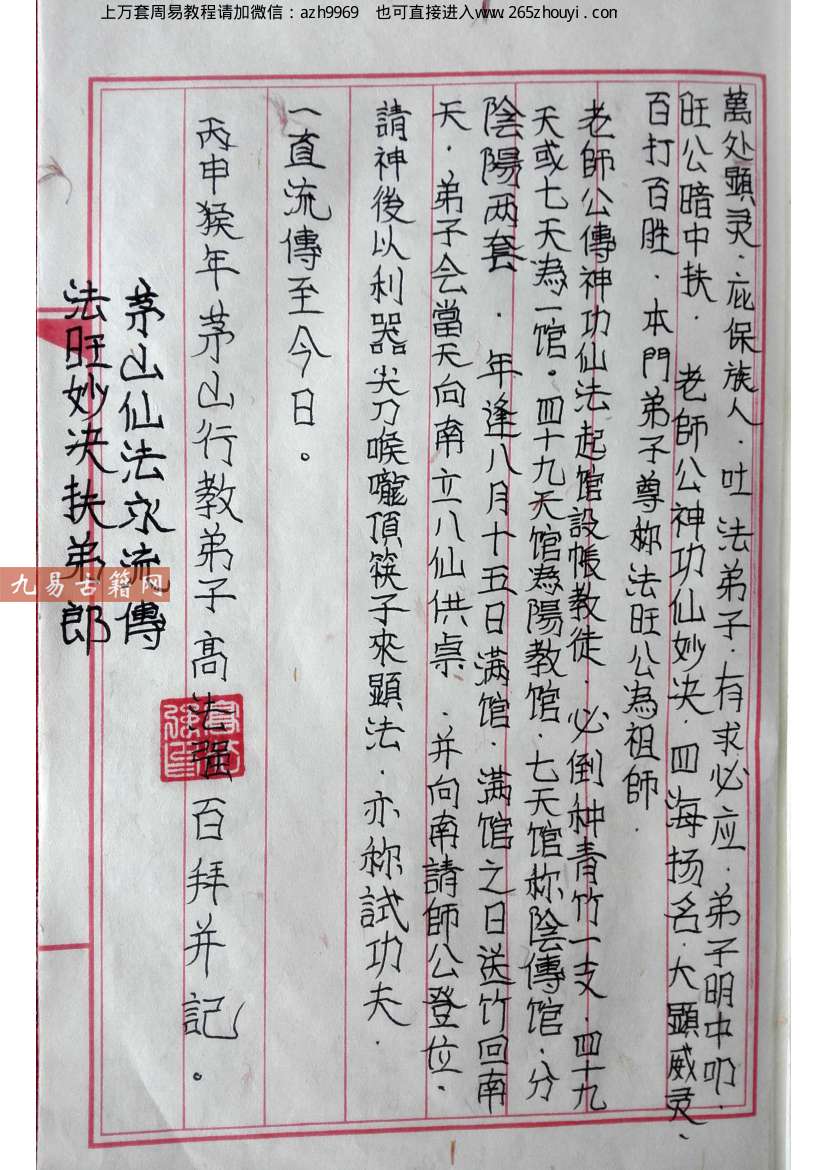 上万套周易教程请加微信：azh9969　也可直接进入www.265zhouyi.com
萬处顯灵．庇保族人．吐法弟子．有求必应．弟子明中叩．
旺公暗中扶．老師公神功仙妙决．四海扬名．大顯威灵、
百打百胜．本門弟子尊称法旺公為祖師．
老師公傳神功仙法起馆設帳教徒．必倒种青竹一支．四十九
天或七天為一馆。四十九天馆為陽教馆．七天馆称陰傳馆．分
陰陽两套．年逢八月十五日满馆．满馆之日送竹回南
天．弟子会當天向南立八仙供桌．并向南請師公登位．
請神後以利器尖刀喉嚨頂筷子來顯法．亦称試功夫．
一直流傳至今日。
丙申猴年茅山行教弟子高法强百拜并記。
茅山仙法永流傳
法旺妙决扶弟郎
九易古籍网